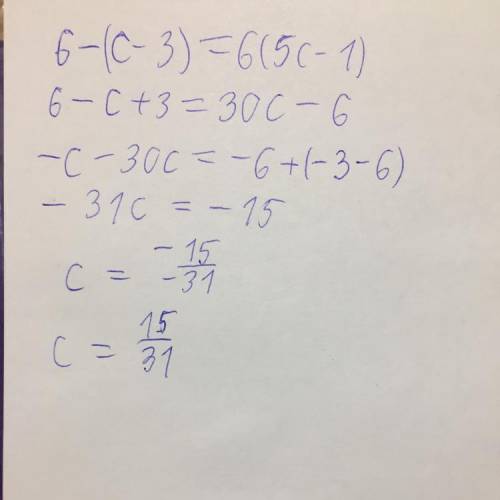 6-(c-3)=6(5c-1)
6-c+3=30c-6
-c-30c=-6+(-3-6)
-31c=-15
c=-15/-31
c=15/31